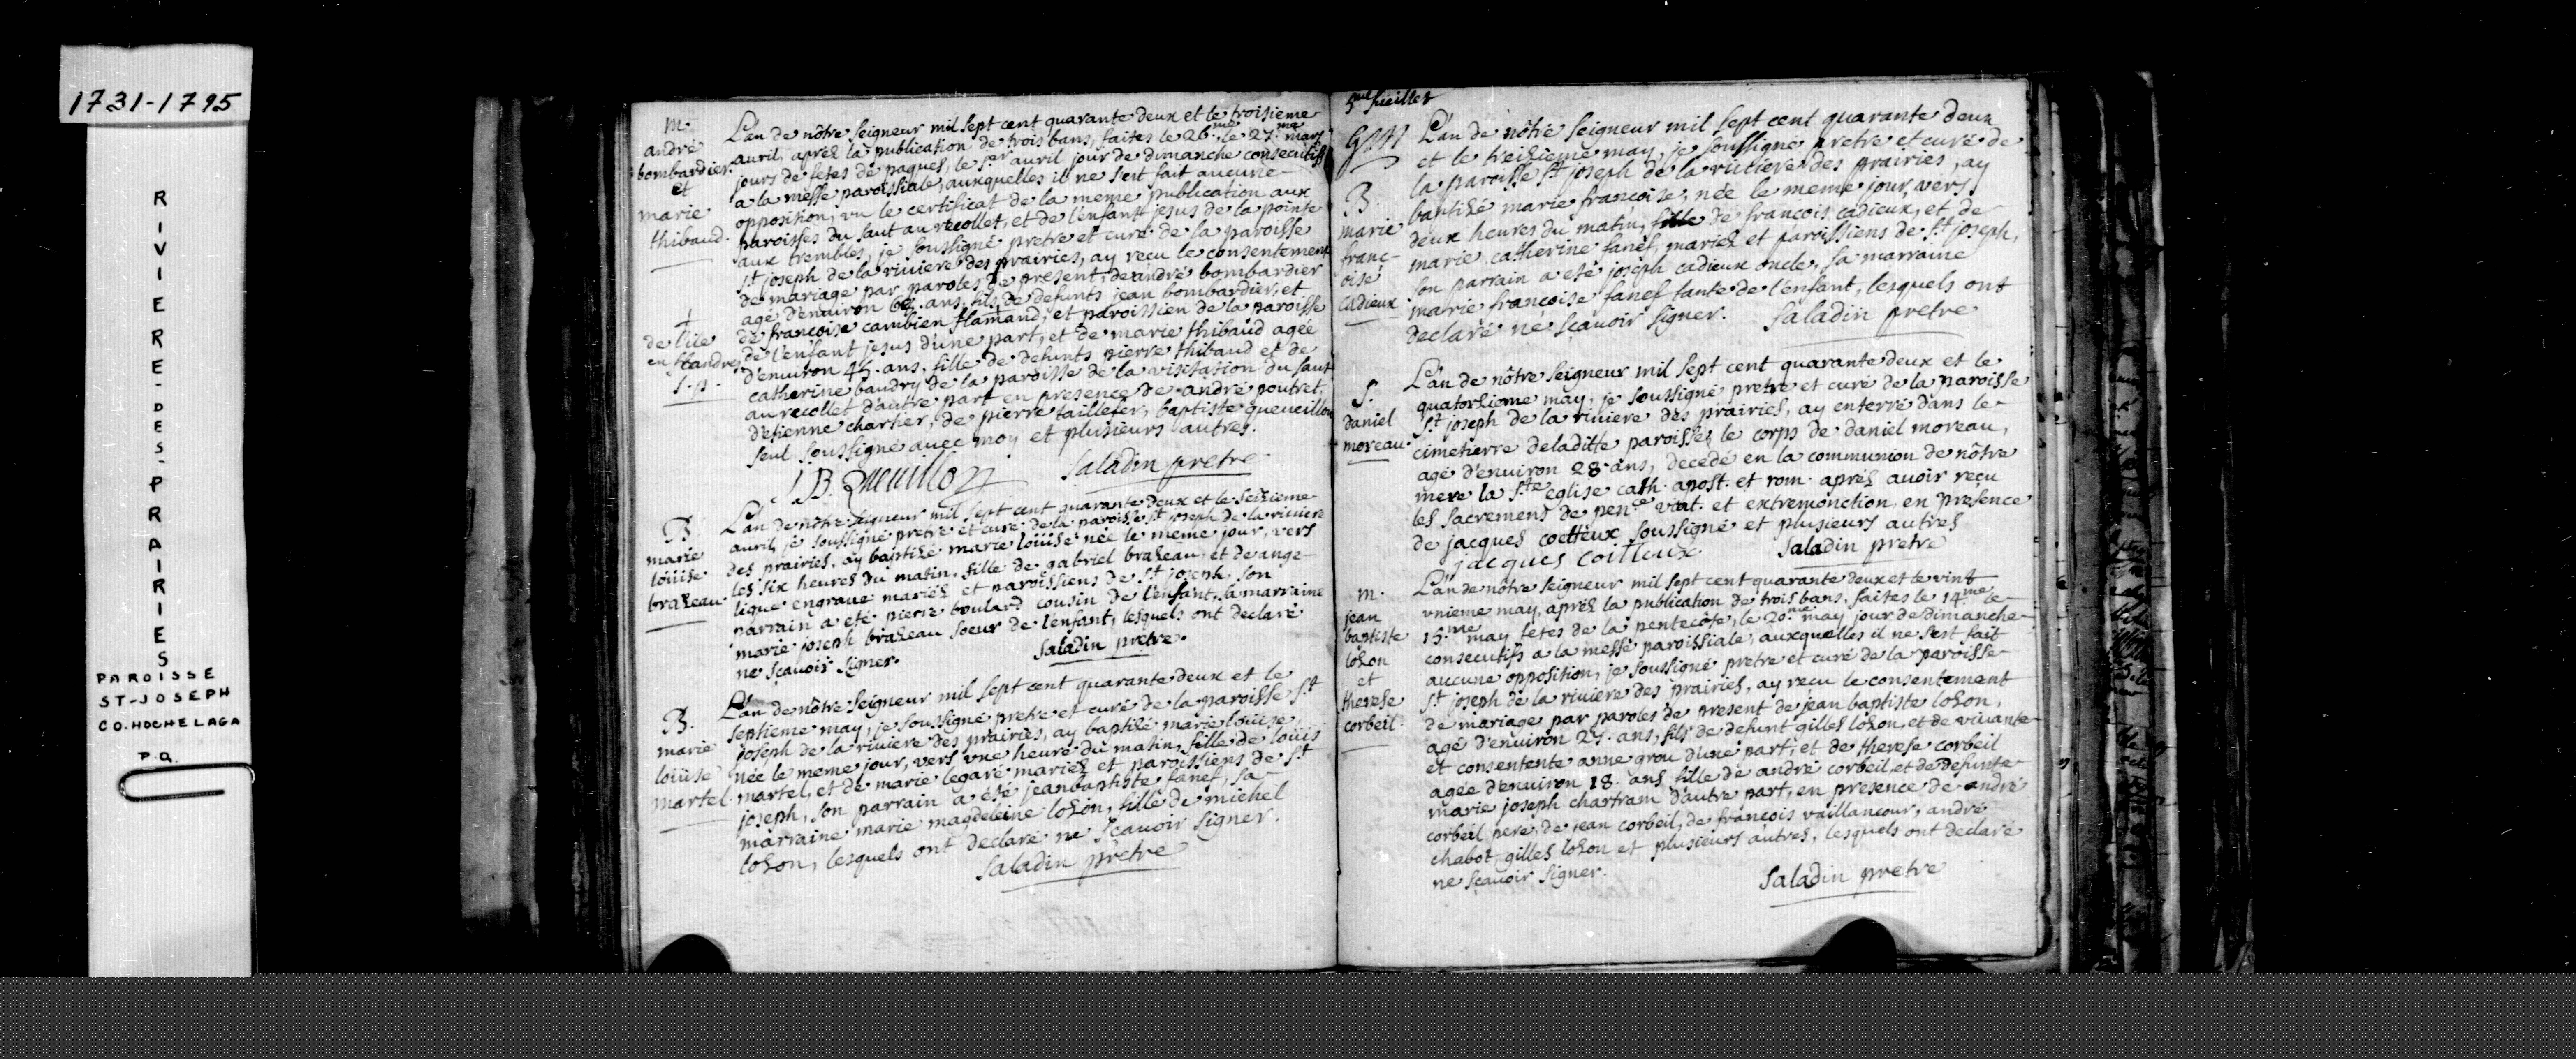 1731-1795
RIVIERE-DES-PRAIRIES
PAROISSE
ST-JOSEPH
CO. HOCHELAGA
P.Q.
m.
andré
bombardier
et
marie
thibaud.
L'an de nôtre seigneur mil sept cent quarante deux et le troisieme
avril, aprés la publication de trois bans, faites le 26.me le 27.me mars
jours de fetes de paques, le 1.er avril jour de dimanche consecutifs
a la messe paroissiale, auxquelles il ne s'est fait aucune
opposition, vu le certificat de la meme publication aux
paroisses du saut au recollet, et de l'enfant jesus de la pointe
aux trembles, je soussigné pretre et curé de la paroisse
st joseph de la riviere des prairies, ay recu le consentement
de mariage par paroles de present, de andré bombardier
agé d'environ ans, fils de defunts jean bombardier, et
de françoise cambien flamand, et paroissien de la paroisse
de l'enfant jesus d'une part, et de marie thibaud agée
d'environ 45. ans, fille de defunts pierre thibaud et de
catherine baudry de la paroisse de la visitation du saut
au recollet d'autre part en presence de andré poutret,
d'etienne charlier, de pierre taillefer, baptiste queneillon
seul soussigné avec moy et plusieurs autres.
+
de l'ile
en flandres
s. p.
J B. Queuillon saladin pretre
B
marie
loüise
brazeau.
L'an de nôtre seigneur mil sept cent quarante deux et le seizieme
avril, je soussigné pretre et curé de la paroisse st joseph de la riviere
des prairies, ay baptizé marie loüise née le meme jour, vers
les six heures du matin, fille de gabriel brazeau, et de ange-
lique engrave mariez et paroissiens de st joseph, son
parrain a eté pierre boulard cousin de l'enfant, la marraine
marie joseph brazeau soeur de l'enfant, lesquels ont declaré
ne sçavoir signer. saladin pretre.
B.
marie
loüise
martel.
L'an de nôtre seigneur mil sept cent quarante deux et le
septieme may, je soussigné pretre et curé de la paroisse st
joseph de la riviere des prairies, ay baptizé marie loüise,
née le meme jour, vers une heure du matin, fille de loüis
martel, et de marie legaré mariez et paroissiens de st
joseph, son parrain a été jean baptiste fanef, sa
marraine marie magdeleine lozon, fille de michel
lozon, lesquels ont declaré ne sçavoir signer.
saladin pretre
5me fueillet
B.
marie
franc-
oise
cadieux.
L'an de nôtre seigneur mil sept cent quarante deux
et le treizieme may, je soussigné pretre et curé de
la paroisse st joseph de la riviere des prairies, ay
baptizé marie françoise, née le meme jour vers
deux heures du matin, fille de francois cadieux, et de
marie catherine fanef, mariez et paroissiens de st joseph,
son parrain a eté joseph cadieux oncle, sa marraine
marie françoise fanef tante de l'enfant, lesquels ont
declaré ne sçavoir signer. saladin pretre
S.
daniel
moreau.
L'an de nôtre seigneur mil sept cent quarante deux et le
quatorzieme may, je soussigné pretre et curé de la paroisse
st joseph de la riviere des prairies, ay enterré dans le
cimetierre de laditte paroisse, le corps de daniel moreau,
agé d'environ 28. ans, decedé en la communion de nôtre
mere la s.te eglise cath. apost. et rom. aprés avoir reçu
les sacremens de pen.ce viat. et extremonction, en presence
de jacques coetteux soussigné et plusieurs autres
jacques coitteux saladin pretre
m.
jean
baptiste
lozon
et
therese
corbeil.
L'an de nôtre seigneur mil sept cent quarante deux et le vint
unieme may, aprés la publication de trois bans, faites le 14.me le
15.me may fetes de la pentecôte, le 20.me may jour de dimanche
consecutifs a la messe paroissiale, auxquelles il ne s'est fait
aucune opposition, je soussigné pretre et curé de la paroisse
st joseph de la riviere des prairies, ay recu le consentement
de mariage par paroles de present de jean baptiste lozon,
agé d'environ 27. ans, fils de defunt gilles lozon, et de vivante
et consentente anne grou d'une part, et de therese corbeil
agée d'environ 18. ans fille de andré corbeil, et de defunte
marie joseph chartram d'autre part, en presence de andré
corbeil pere, de jean corbeil, de francois vaillancour, andre
chabot, gilles lozon et plusieurs autres, lesquels ont declaré
ne sçavoir signer. saladin pretre